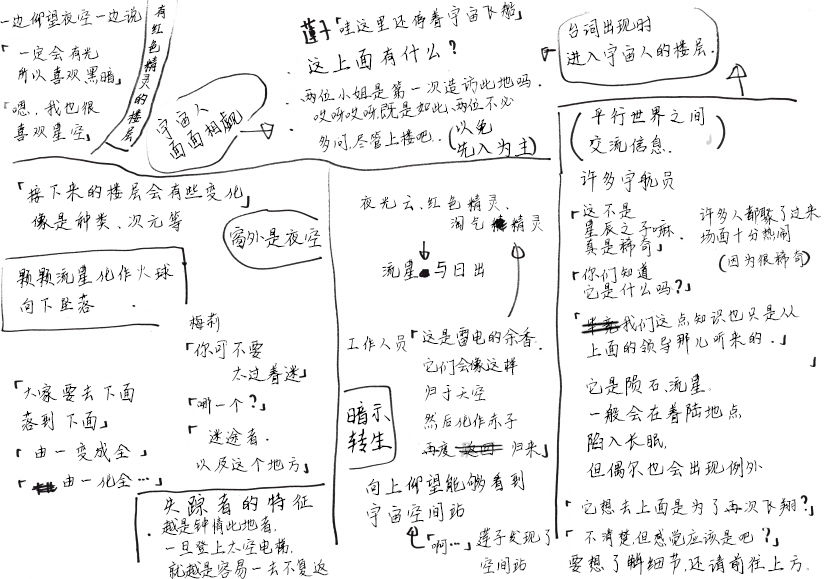 一边仰望夜空一边说
「一定会有光
所以喜欢黑暗」
「嗯，我也很
喜欢星空」
有红色精灵的楼层
宇宙人
面面相觑
莲子「哇这里还停着宇宙飞船
这上面有什么？
两位小姐是第一次造访此地吗.
哎呀哎呀,既是如此,两位不必
多问,尽管上楼吧.
(以免
先入为主)
台词出现时
进入宇宙人的楼层.
「接下来的楼层会有些变化」
像是种类、次元等
窗外是夜空
颗颗流星化作火球
向下坠落.
「大家要去下面
落到下面」
「由一变成全」
「由一化全…」
梅莉
「你可不要
太过着迷」
「哪一个？」
「迷途者.
以及这个地方」
失踪者的特征
越是钟情此地者,
一旦登上太空电梯,
就越是容易一去不复返
夜光云、红色精灵、
淘气精灵
流星与日出
工作人员「这是雷电的余香.
它们会像这样
归于天空
然后化作赤子
再度归来」
暗示
转生
向上仰望能够看到
宇宙空间站
「啊…」莲子发现了
空间站
(平行世界之间
交流信息.)
许多宇航员
「这不是
星辰之子嘛.
真是稀奇」
许多人都聚了过来
场面十分热闹
(因为很稀奇)
「你们知道
它是什么吗？」
「我们这点知识也只是从
上面的领导那儿听来的.」
」
它是陨石、流星.
一般会在着陆地点
陷入长眠,
但偶尔也会出现例外
「它想去上面是为了再次飞翔？」
「不清楚,但感觉应该是吧？」
要想了解细节,还请前往上方.